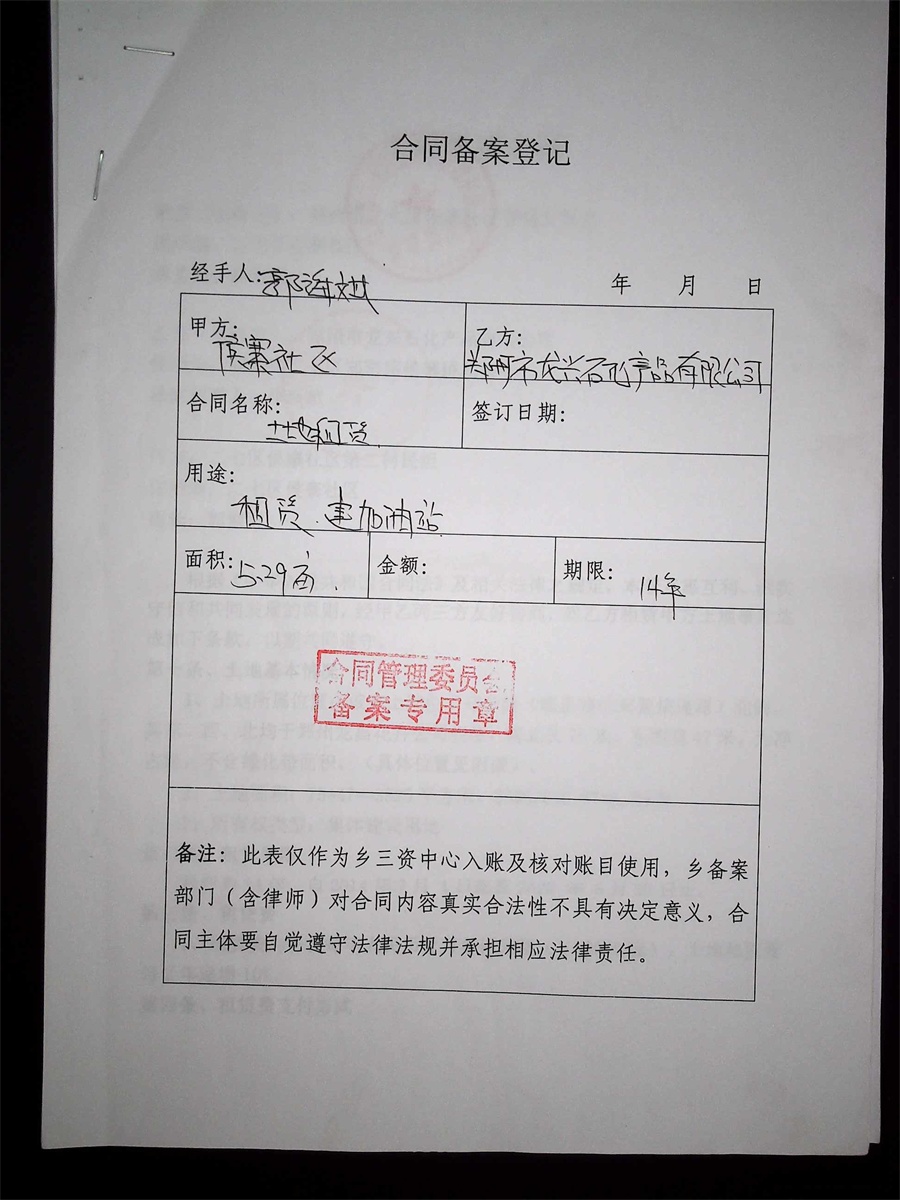 合同备案登记
经手人: 年 月 日
甲方: 乙方:
侯寨社区 郑州市龙兴石化产品有限公司
合同名称: 签订日期:
土地租赁
用途:
租赁.建加油站
面积: 5.29亩 金额: 期限: 14年
合同管理委员会
备案专用章
备注：此表仅作为乡三资中心入账及核对账目使用，乡备案
部门（含律师）对合同内容真实合法性不具有决定意义，合
同主体要自觉遵守法律法规并承担相应法律责任。